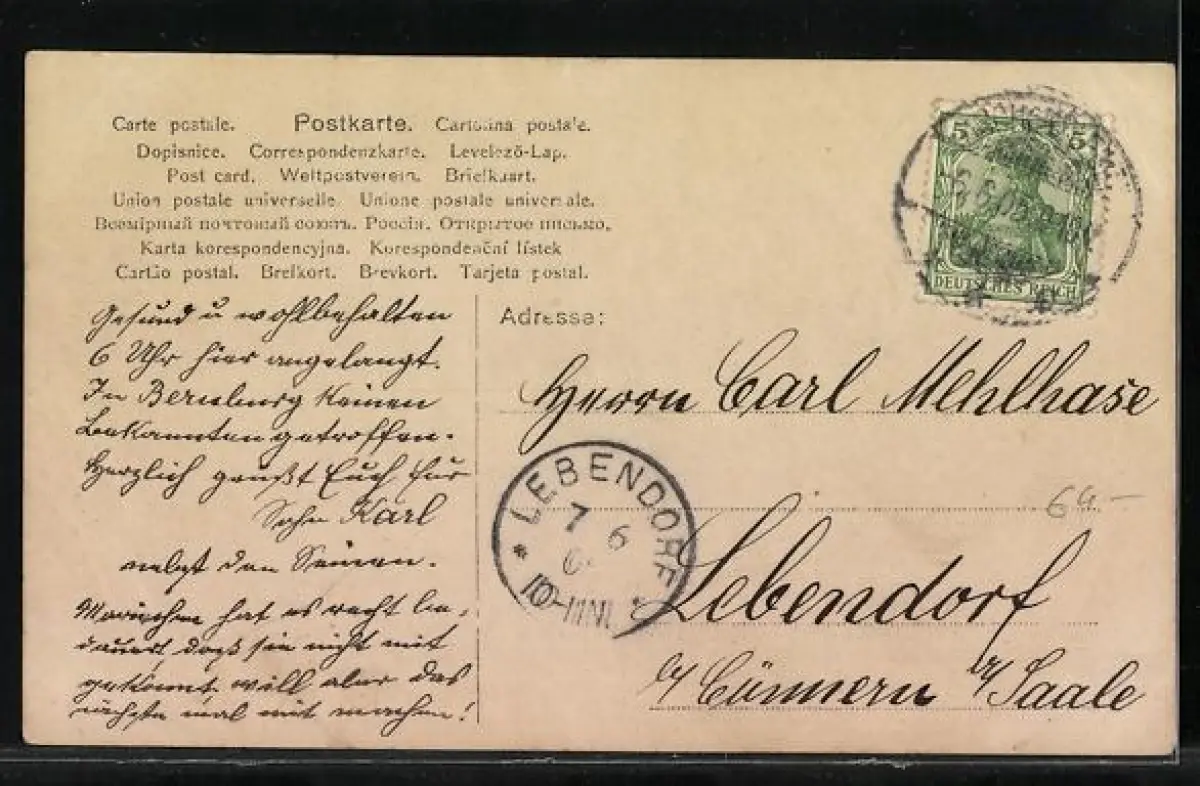 Carte postale. Postkarte. Cartolina postale.
Dopisnice. Correspondenzkarte. Levelező-Lap.
Post card. Weltpostverein. Briefkaart.
Union postale universelle. Unione postale universale.
Всемірный почтовый союзъ. Россія. Открытое письмо.
Karta korespondencyjna. Korespondenční lístek
Cartão postal. Brefkort. Brevkort. Tarjeta postal.
Gesund u wohlbehalten
6 Uhr hier angelangt.
In Bernburg keinen
Bekannten getroffen.
Herzlich grüßt Euch Eur
Sohn Karl
nebst den Seinen.
Mariechen hat es recht be-
dauert, daß sie nicht mit
gekonnt. will aber das
nächste mal mit machen!
5 5
DEUTSCHES REICH
Adresse:
Herrn Carl Mehlhase
64-
LEBENDORF
7 6
10-11N
Lebendorf
b/ Cönnern a/ Saale